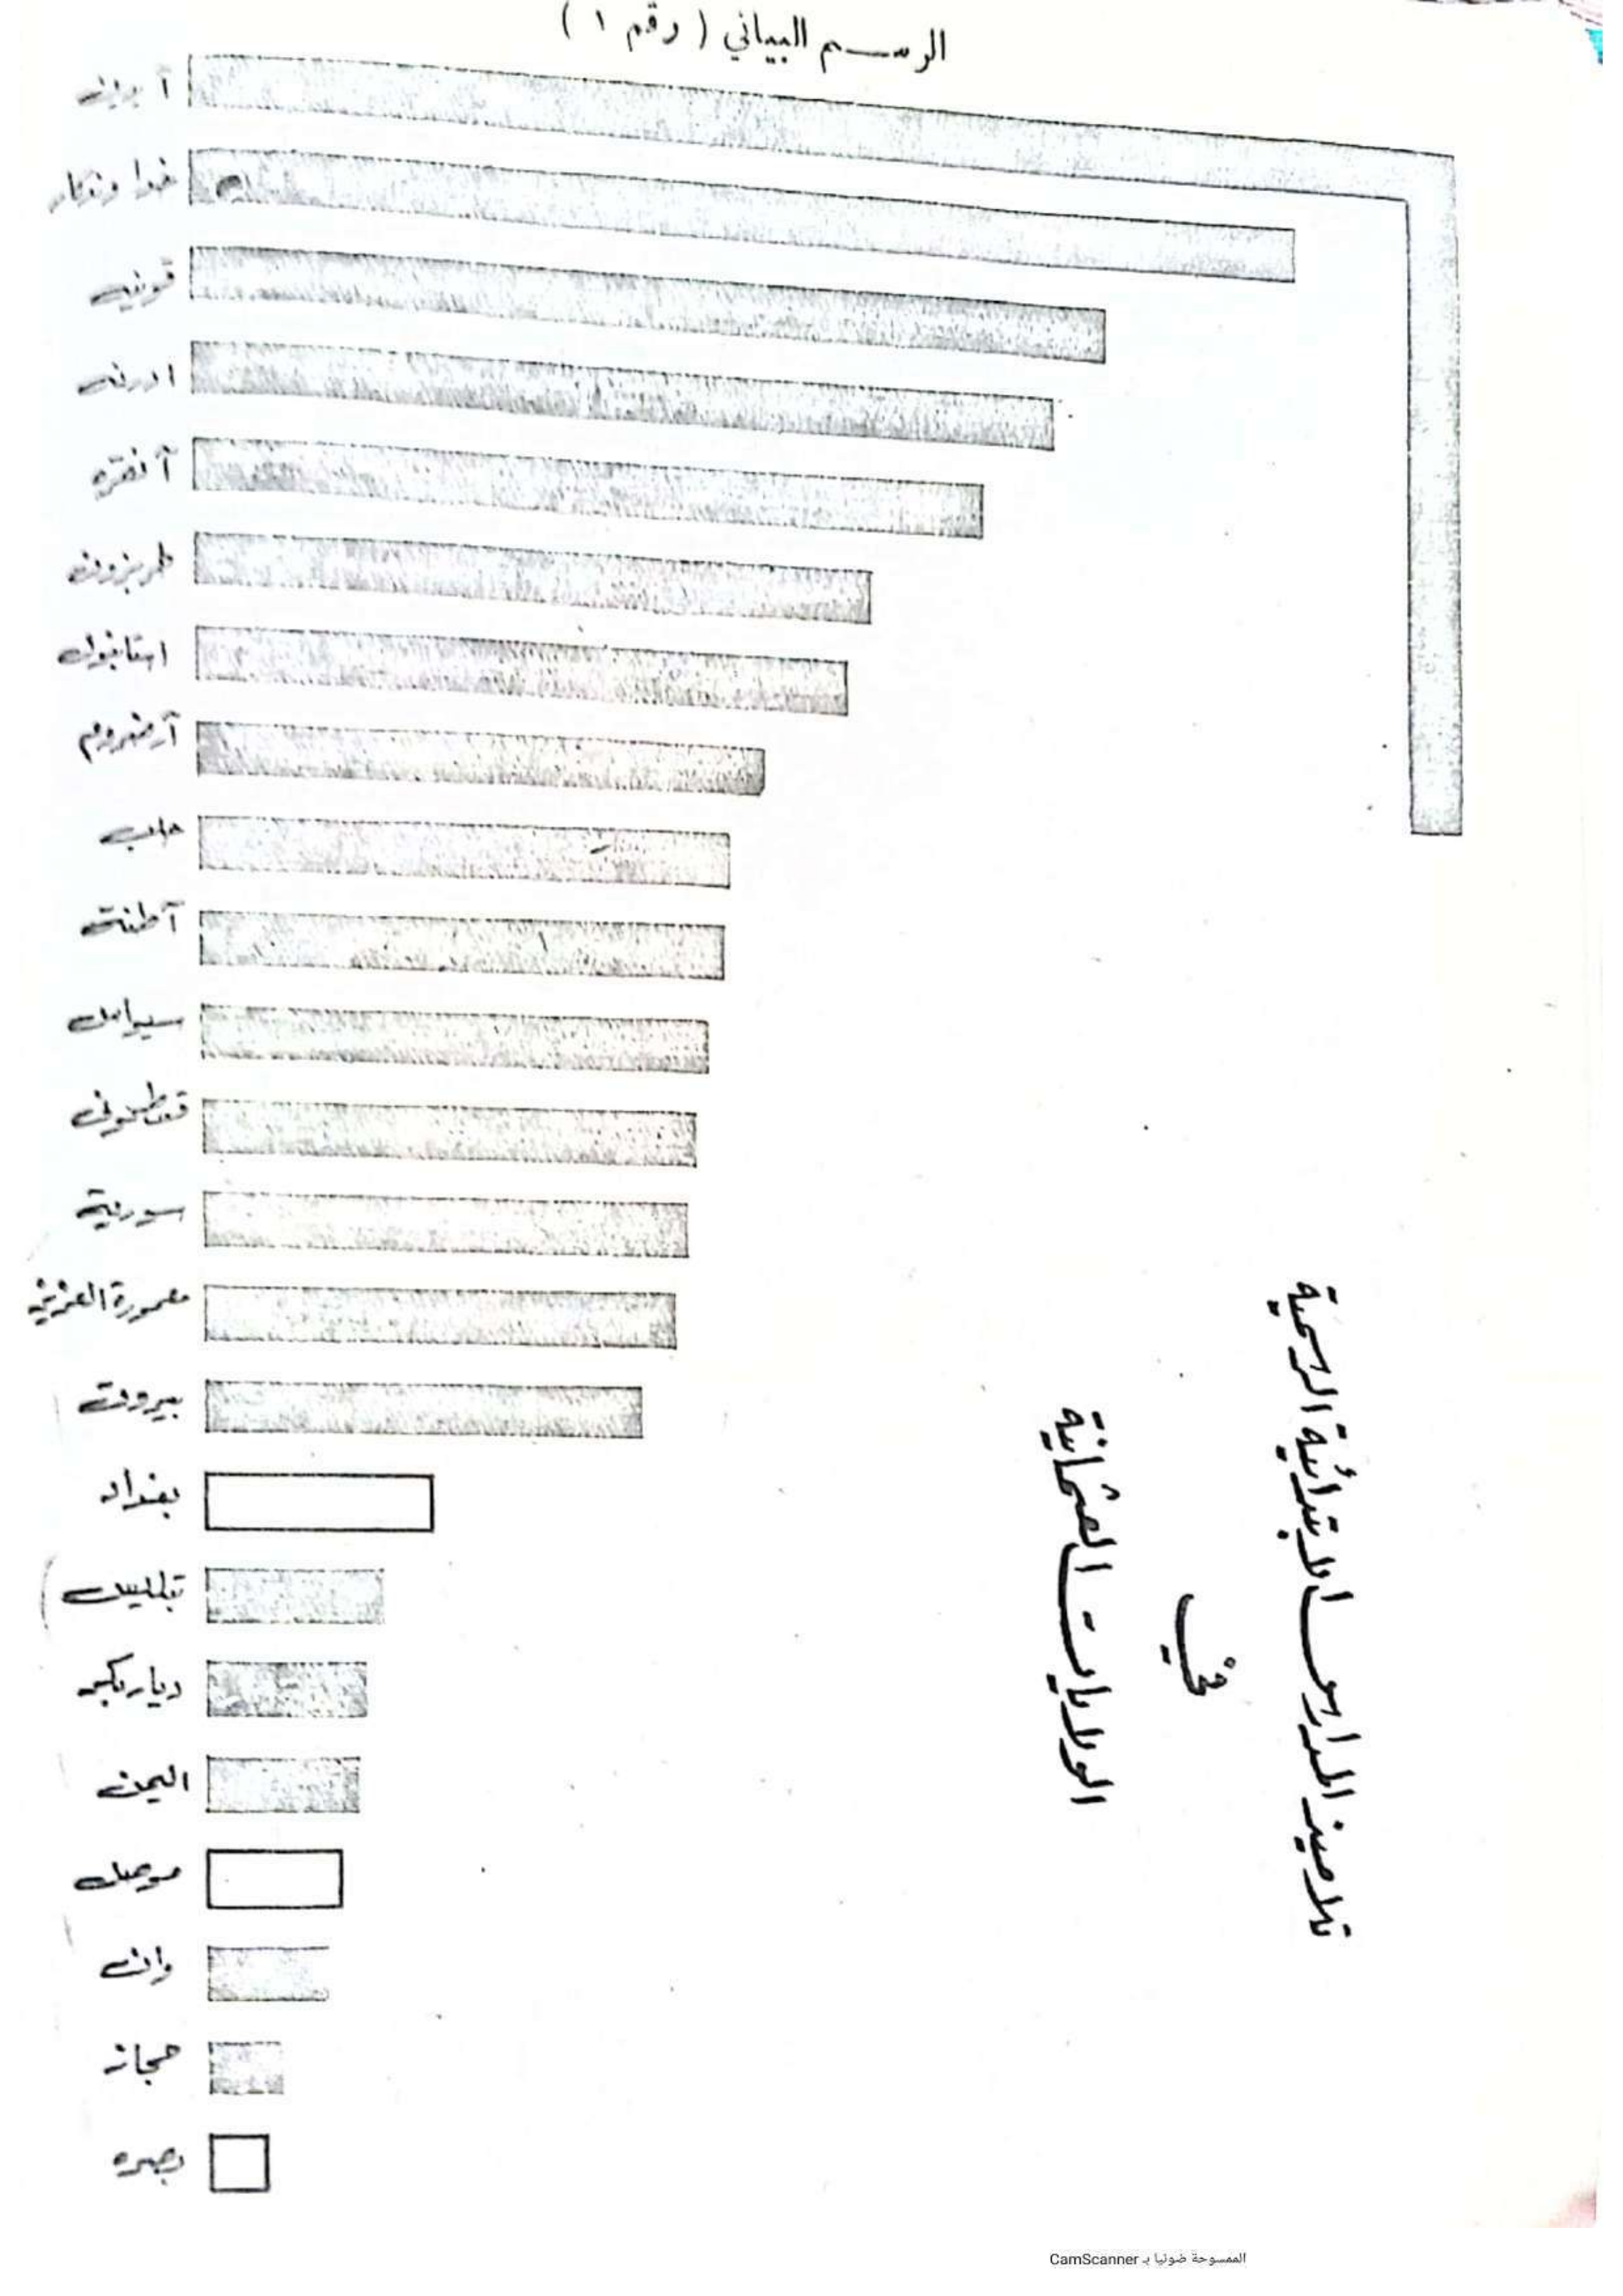 الرسم البياني ( رقم ١ )
آيدين
خداوندكار
قونيه
ادرنه
آنقره
طربزون
استانبول
آرضروم
حلب
آطنة
سيواس
قسطموني
سورية
معمورة العزيز
بيروت
بغداد
بتليس
دياربكر
اليمن
موصل
وان
حجاز
بصره
تلاميذ المدارس الابتدائية الرسمية
في
الولايات العثمانية
الممسوحة ضوئيا بـ CamScanner